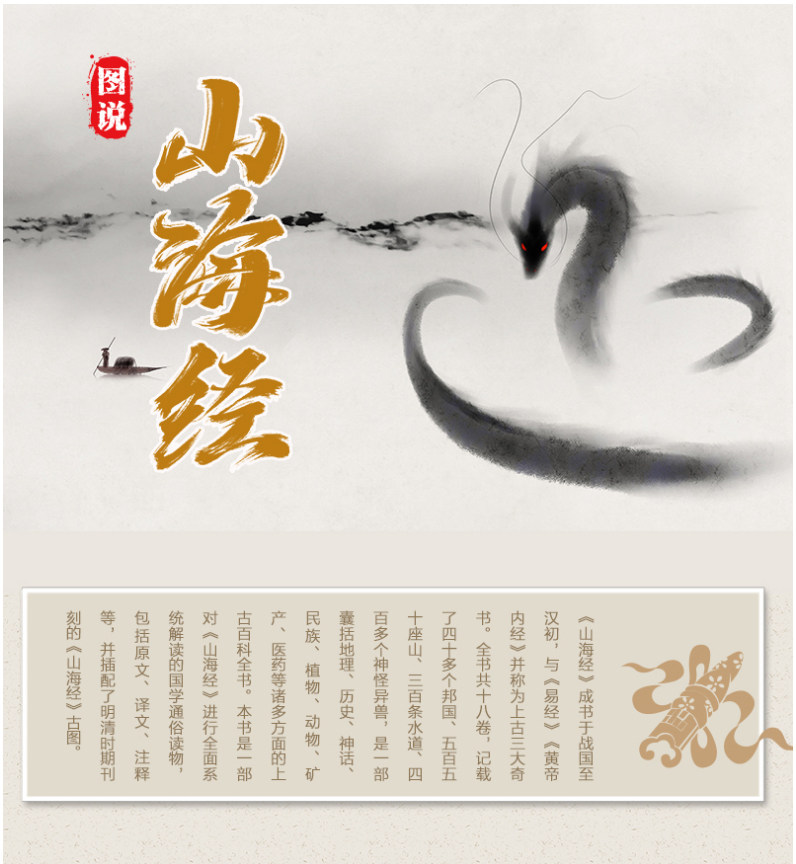 图说
山海经
《山海经》成书于战国至
汉初，与《易经》《黄帝
内经》并称为上古三大奇
书。全书共十八卷，记载
了四十多个邦国、五百五
十座山、三百条水道、四
百多个神怪异兽，是一部
囊括地理、历史、神话、
民族、植物、动物、矿
产、医药等诸多方面的上
古百科全书。本书是一部
对《山海经》进行全面系
统解读的国学通俗读物，
包括原文、译文、注释
等，并插配了明清时期刊
刻的《山海经》古图。